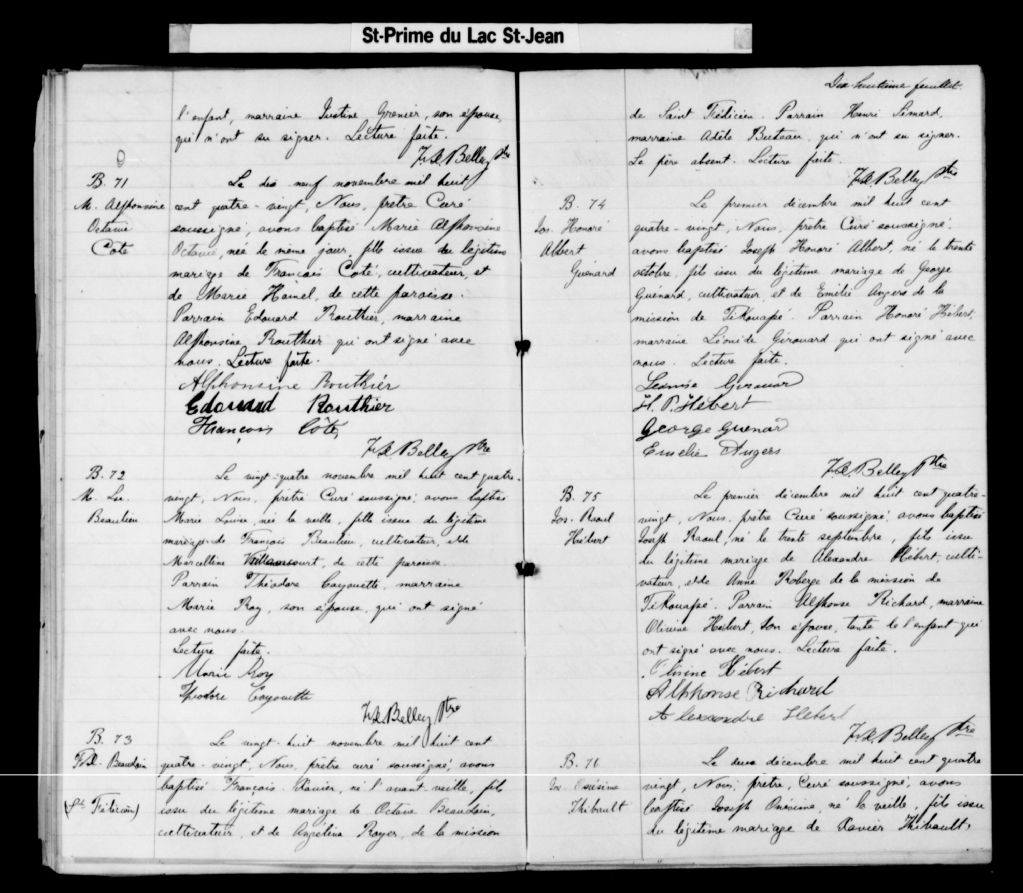 St-Prime du Lac St-Jean
l'enfant, marraine Justine Grenier, son épouse,
qui n'ont su signer. Lecture faite.
F. X. Belley Ptre
B. 71
M. Alphonsine
Octavie
Coté
Le dix neuf novembre mil huit
cent quatre-vingt, Nous, prêtre Curé
soussigné, avons baptisé Marie Alphonsine
Octavie, née le même jour, fille issue du légitime
mariage de François Coté, cultivateur, et
de Marie Hamel, de cette paroisse.
Parrain Edouard Routhier, marraine
Alphonsine Routhier qui ont signé avec
nous. Lecture faite.
Alphonsine Routhier
Edouard Routhier
François Côté
F. X. Belley Ptre
B. 72
M. Lse
Beaulieu
Le vingt-quatre novembre mil huit cent quatre-
vingt, Nous, prêtre Curé soussigné, avons baptisé
Marie Louise, née la veille, fille issue du légitime
mariage de François Beaulieu, cultivateur, et de
Marcelline Villancourt, de cette paroisse.
Parrain Théodore Cayouette, marraine
Marie Roy, son épouse, qui ont signé
avec nous.
Lecture faite.
Marie Roy
Théodore Cayouette
F. X. Belley Ptre
B. 73
F. X. Beaudoin
(St Félicien)
Le vingt-huit novembre mil huit cent
quatre-vingt, Nous, prêtre curé soussigné, avons
baptisé François Xavier, né l'avant-veille, fils
issu du légitime mariage de Octave Beaudoin,
cultivateur, et de Angelina Royer, de la mission
Dix huitième feuillet.
de Saint Félicien. Parrain Henri Simard,
marraine Adèle Buteau, qui n'ont su signer.
Le père absent. Lecture faite.
F. X. Belley Ptre
B. 74
Jos. Honoré
Albert
Guénard
Le premier décembre mil huit cent
quatre-vingt, Nous, prêtre Curé soussigné,
avons baptisé Joseph Honoré Albert, né le trente
octobre, fils issu du légitime mariage de George
Guénard, cultivateur, et de Emilie Angers de la
mission de Tikouapé. Parrain Honoré Hébert,
marraine Léonide Girouard qui ont signé avec
nous. Lecture faite.
Girouard
H. P. Hébert
George Guenard
Emelie Angers
F. X. Belley Ptre
B. 75
Jos. Raoul
Hébert
Le premier décembre mil huit cent quatre-
vingt, Nous, prêtre Curé soussigné, avons baptisé
Joseph Raoul, né le trente septembre, fils issu
du légitime mariage de Alexandre Hébert, culti-
vateur, et de Anne Roberge de la mission de
Tikouapé. Parrain Alphonse Richard, marraine
Olivine Hébert, son épouse, tante de l'enfant qui
ont signé avec nous. Lecture faite.
Olivine Hébert
Alphonse Richard
Alexandre Hebert
F. X. Belley Ptre
B. 76
Jos. Onésime
Thibault
Le deux décembre mil huit cent quatre
vingt, Nous, prêtre, Curé soussigné, avons
baptisé Joseph Onésime, né la veille, fils issu
du légitime mariage de Xavier Thibault,